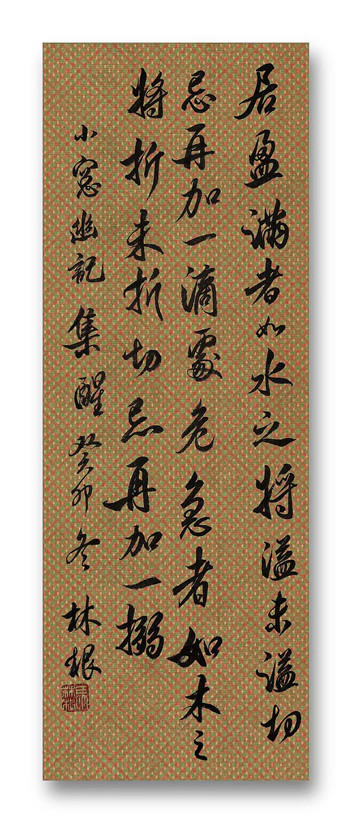 居盈满者如水之将溢未溢切
忌再加一滴處危急者如木之
将折未折切忌再加一搦
小窓幽記集醒癸卯冬林根